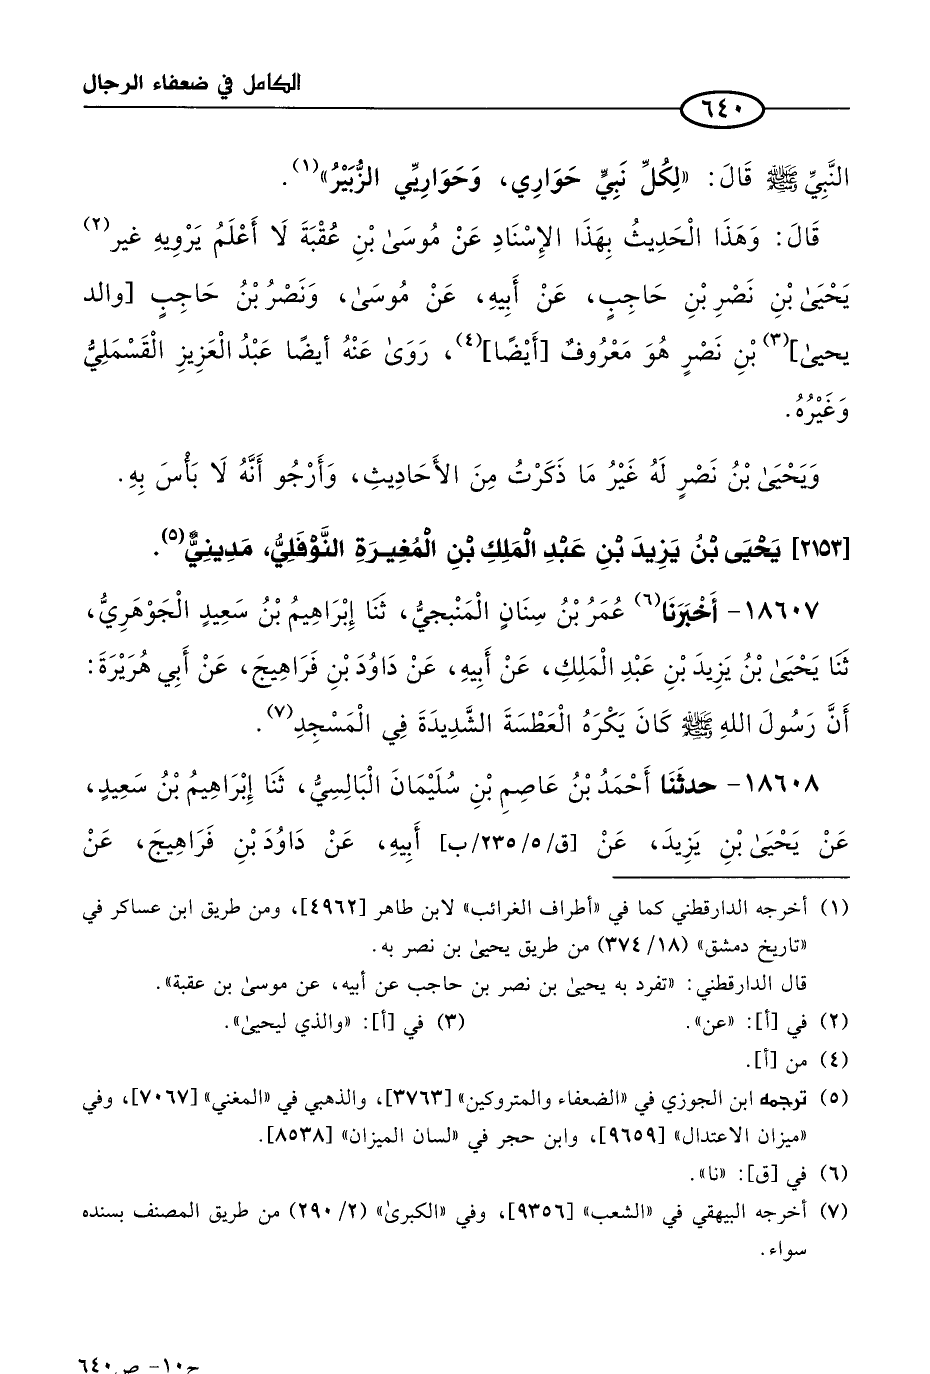 الكامل في ضعفاء الرجال
٦٤٠
النَّبِيِّ ﷺ قَالَ: «لِكُلِّ نَبِيٍّ حَوَارِي، وَحَوَارِيِّي الزُّبَيْرُ»(١).
قَالَ: وَهَذَا الْحَدِيثُ بِهَذَا الإِسْنَادِ عَنْ مُوسَىٰ بْنِ عُقْبَةَ لَا أَعْلَمُ يَرْوِيهِ غير(٢)
يَحْيَىٰ بْنِ نَصْرِ بْنِ حَاجِبٍ، عَنْ أَبِيهِ، عَنْ مُوسَىٰ، وَنَصْرُ بْنُ حَاجِبٍ [والد
يحيىٰ](٣) بْنِ نَصْرٍ هُوَ مَعْرُوفٌ [أَيْضًا](٤)، رَوَىٰ عَنْهُ أيضًا عَبْدُ الْعَزِيزِ الْقَسْمَلِيُّ
وَغَيْرُهُ.
وَيَحْيَىٰ بْنُ نَصْرٍ لَهُ غَيْرُ مَا ذَكَرْتُ مِنَ الأَحَادِيثِ، وَأَرْجُو أَنَّهُ لَا بَأْسَ بِهِ.
[٢١٥٣] يَحْيَى بْنُ يَزِيدَ بْنِ عَبْدِ الْمَلِكِ بْنِ الْمُغِيرَةِ النَّوْفَلِيُّ، مَدِينِيٌّ(٥).
١٨٦٠٧- أَخْبَرَنَا(٦) عُمَرُ بْنُ سِنَانٍ الْمَنْبجيُّ، ثَنَا إِبْرَاهِيمُ بْنُ سَعِيدٍ الْجَوْهَرِيُّ،
ثَنَا يَحْيَىٰ بْنُ يَزِيدَ بْنِ عَبْدِ الْمَلِكِ، عَنْ أَبِيهِ، عَنْ دَاوُدَ بْنِ فَرَاهِيجَ، عَنْ أَبِي هُرَيْرَةَ:
أَنَّ رَسُولَ اللهِ ﷺ كَانَ يَكْرَهُ الْعَطْسَةَ الشَّدِيدَةَ فِي الْمَسْجِدِ(٧).
١٨٦٠٨- حدثَنَا أَحْمَدُ بْنُ عَاصِمِ بْنِ سُلَيْمَانَ الْبَالِسِيُّ، ثَنَا إِبْرَاهِيمُ بْنُ سَعِيدٍ،
عَنْ يَحْيَىٰ بْنِ يَزِيدَ، عَنْ [ق/٥/٢٣٥/ب] أَبِيهِ، عَنْ دَاوُدَ بْنِ فَرَاهِيجَ، عَنْ
(١) أخرجه الدارقطني كما في «أطراف الغرائب» لابن طاهر [٤٩٦٢]، ومن طريق ابن عساكر في
«تاريخ دمشق» (١٨/ ٣٧٤) من طريق يحيىٰ بن نصر به.
قال الدارقطني: «تفرد به يحيىٰ بن نصر بن حاجب عن أبيه، عن موسىٰ بن عقبة».
(٢) في [أ]: «عن». (٣) في [أ]: «والذي ليحيىٰ».
(٤) من [أ].
(٥) ترجمه ابن الجوزي في «الضعفاء والمتروكين» [٣٧٦٣]، والذهبي في «المغني» [٧٠٦٧]، وفي
«ميزان الاعتدال» [٩٦٥٩]، وابن حجر في «لسان الميزان» [٨٥٣٨].
(٦) في [ق]: «نا».
(٧) أخرجه البيهقي في «الشعب» [٩٣٥٦]، وفي «الكبرىٰ» (٢/ ٢٩٠) من طريق المصنف بسنده
سواء.
ج١٠- ص٦٤٠